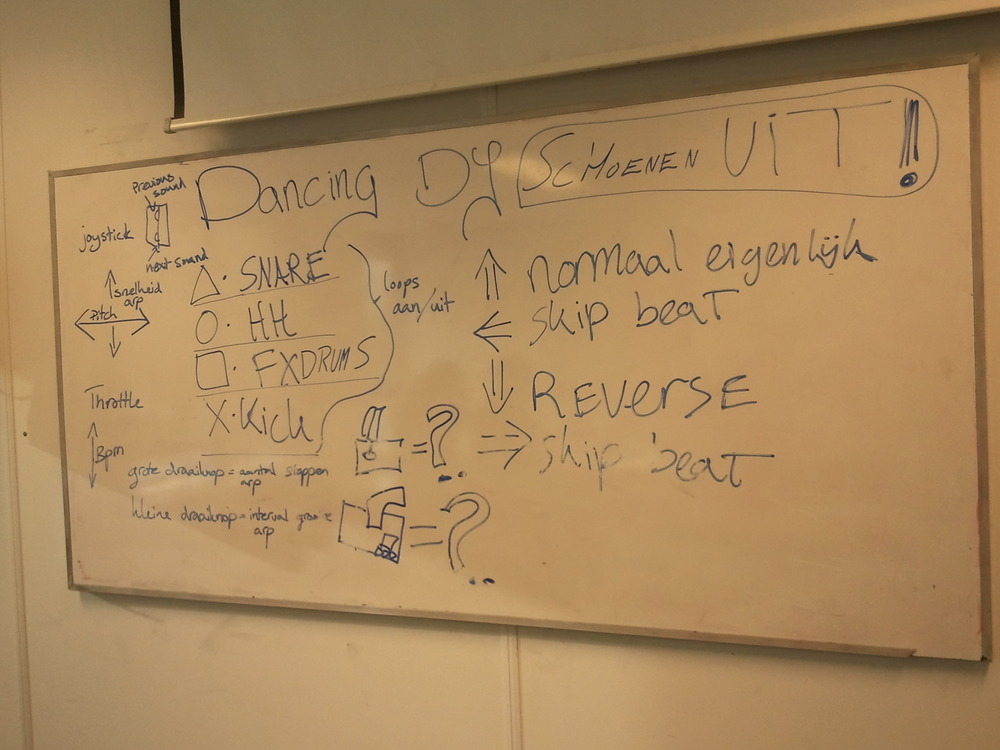 Dancing DJ SCHOENEN UiT!!
Previous
sound
joystick
next sound
snelheid
arp
Pitch
Throttle
Bpm
△. SNARE
O. HH
□. FXDRUMS
X. Kick
loops
aan/uit
↑ normaal eigenlijk
← skip beat
↓ REVERSE
→ skip beat
grote draaiknop = aantal stappen
arp
= ?..
kleine draaiknop = interval grootte
arp
= ?..